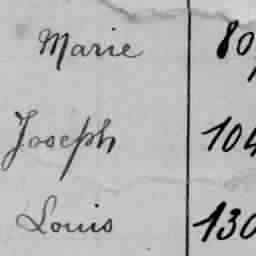 Marie 80
Joseph 104
Louis 130